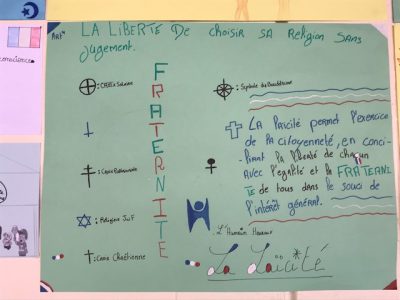 Art 4
LA LiBERTÉ De choisir SA Religion SANS
jugement.
FRATERNITE
: CROIX Solaire
: Croix
: Religion Juif
: Croix Chrétienne
: Symbole du Bouddhisme
LA laïcité permet l'exercice
de la citoyenneté, en conci-
liant la liberté de chacun
avec l'égalité et la FRATERNI
TE de tous dans le souci de
l'intérêt général.
L'Humain Heureux
La Laïcité